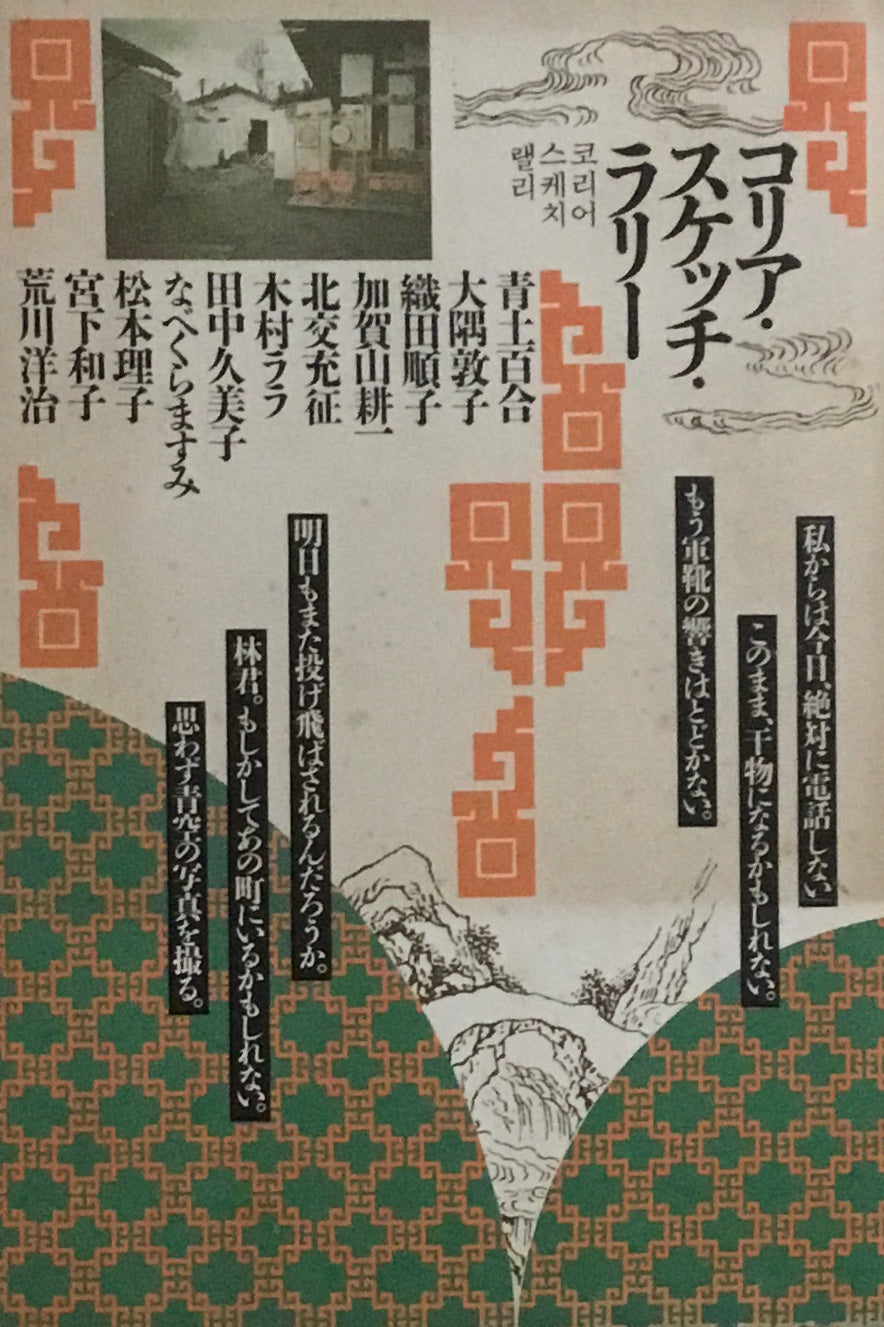 コリア・
スケッチ・
ラリー
코리어
스케치
랠리
青土百合
大隅敦子
織田順子
加賀山耕一
北交充征
木村ララ
田中久美子
なべくらますみ
松本理子
宮下和子
荒川洋治
「私からは今日、絶対に電話しない」
このまま、干物になるかもしれない。
もう軍靴の響きはとどかない。
明日もまた投げ飛ばされるんだろうか。
林君。もしかしてあの町にいるかもしれない。
思わず青空の写真を撮る。